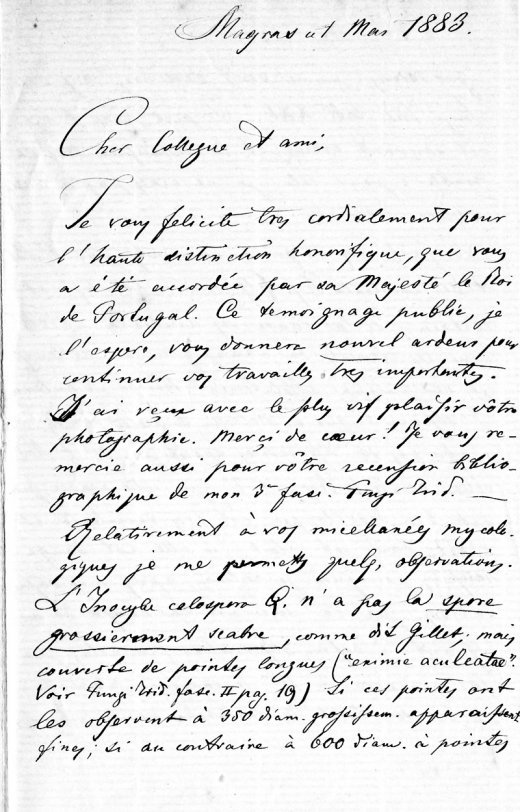 Magras ut Mai 1883.
Cher Collegue et ami,
Je vous felicite tres cordialement pour
l'haute distinction honorifique, que vous
a été accordée par sa Majesté le Roi
de Portugal. Ce temoignage public, je
l'espere, vous donnera nouvel ardeur pour
continuer vos travailles tres importantes.
J'ai reçue avec le plus vif plaisir vôtre
photographie. Merçi de cœur! Je vous re-
mercie aussi pour vôtre recension biblio-
graphique de mon 3e fasc. Fungi Trid. —
Relativement à vos miscellanées mycolo-
giques je me permetts quelq. observations.
L'Inocybe calospora Q. n'a pas la spore
grossierement scabre, comme dit Gillet, mais
couverte de pointes longues ("eximie aculeatae".
Voir Fungi Trid. fasc. II pag. 19) Si ces pointes ont
les observent à 350 diam. grossissem. apparaissent
fines; si au contraire à 600 diam. à pointes